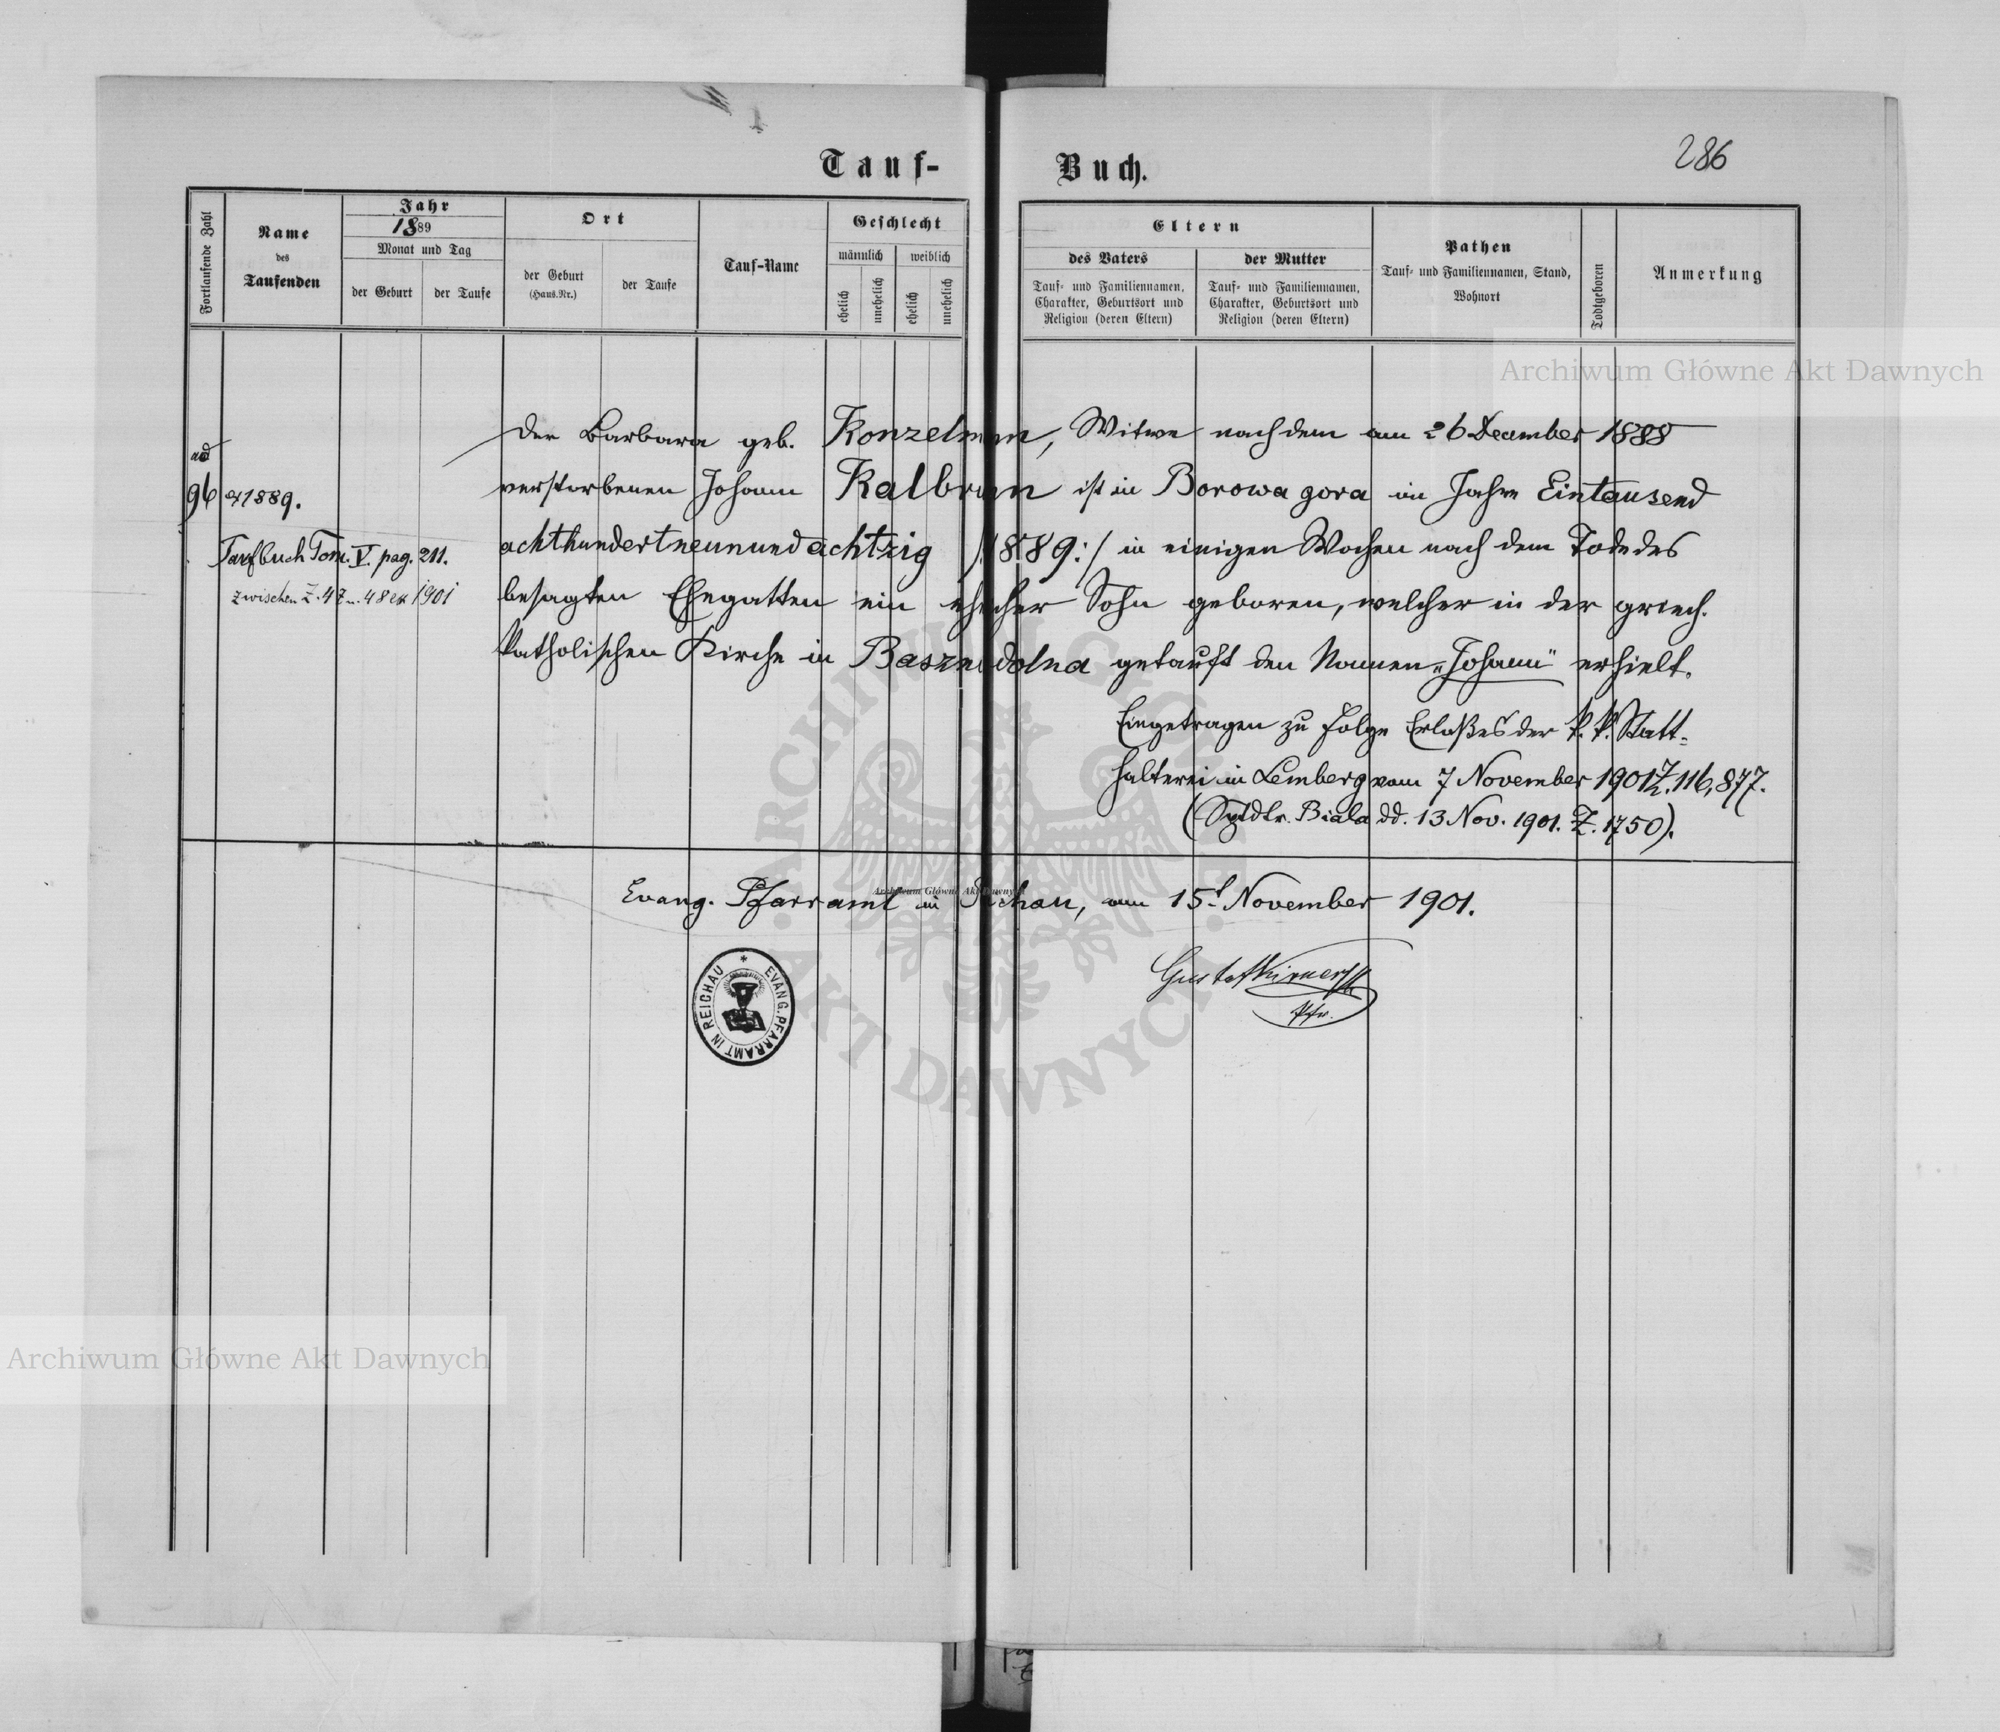 286
Tauf-Buch.
Fortlaufende Zahl
Name
des
Taufenden
Jahr
1889
Monat und Tag
der Geburt
der Taufe
Ort
der Geburt
(Haus.Nr.)
der Taufe
Tauf-Name
Geschlecht
männlich
weiblich
ehelich
unehelich
ehelich
unehelich
Eltern
des Vaters
Tauf- und Familiennamen,
Charakter, Geburtsort und
Religion (deren Eltern)
der Mutter
Tauf- und Familiennamen,
Charakter, Geburtsort und
Religion (deren Eltern)
Pathen
Tauf- und Familiennamen, Stand,
Wohnort
Todtgeboren
Anmerkung
ad
96 ex 1889.
Taufbuch Tom. V. pag. 211.
zwischen Z. 47 u. 48 ex 1901
Der Barbara geb. Konzelman, Witwe nach dem am 26 December 1888
verstorbenen Johann Kalbrun ist in Borowa gora im Jahre Eintausend
achthundertneunundachtzig /:1889:/ in einigen Wochen nach dem Tode des
besagten Ehegatten ein ehelicher Sohn geboren, welcher in der griech.
katholischen Kirche in Basznia dolna getauft den Namen „Johann" erhielt.
Eingetragen zu Folge Erlaßes der k. k. Statt-
halterei in Lemberg vom 7 November 1901 Z. 116,877.
(Sptdtr. Biala dd. 13 Nov. 1901. Z. 1750).
Evang. Pfarramt in Reichau, am 15t November 1901.
EVANG. PFARRAMT IN REICHAU *
Gustaf
Pfr.
Archiwum Główne Akt Dawnych
Archiwum Główne Akt Dawnych
Archiwum Główne Akt Dawnych
ARCHIWUM GŁÓWNE AKT DAWNYCH